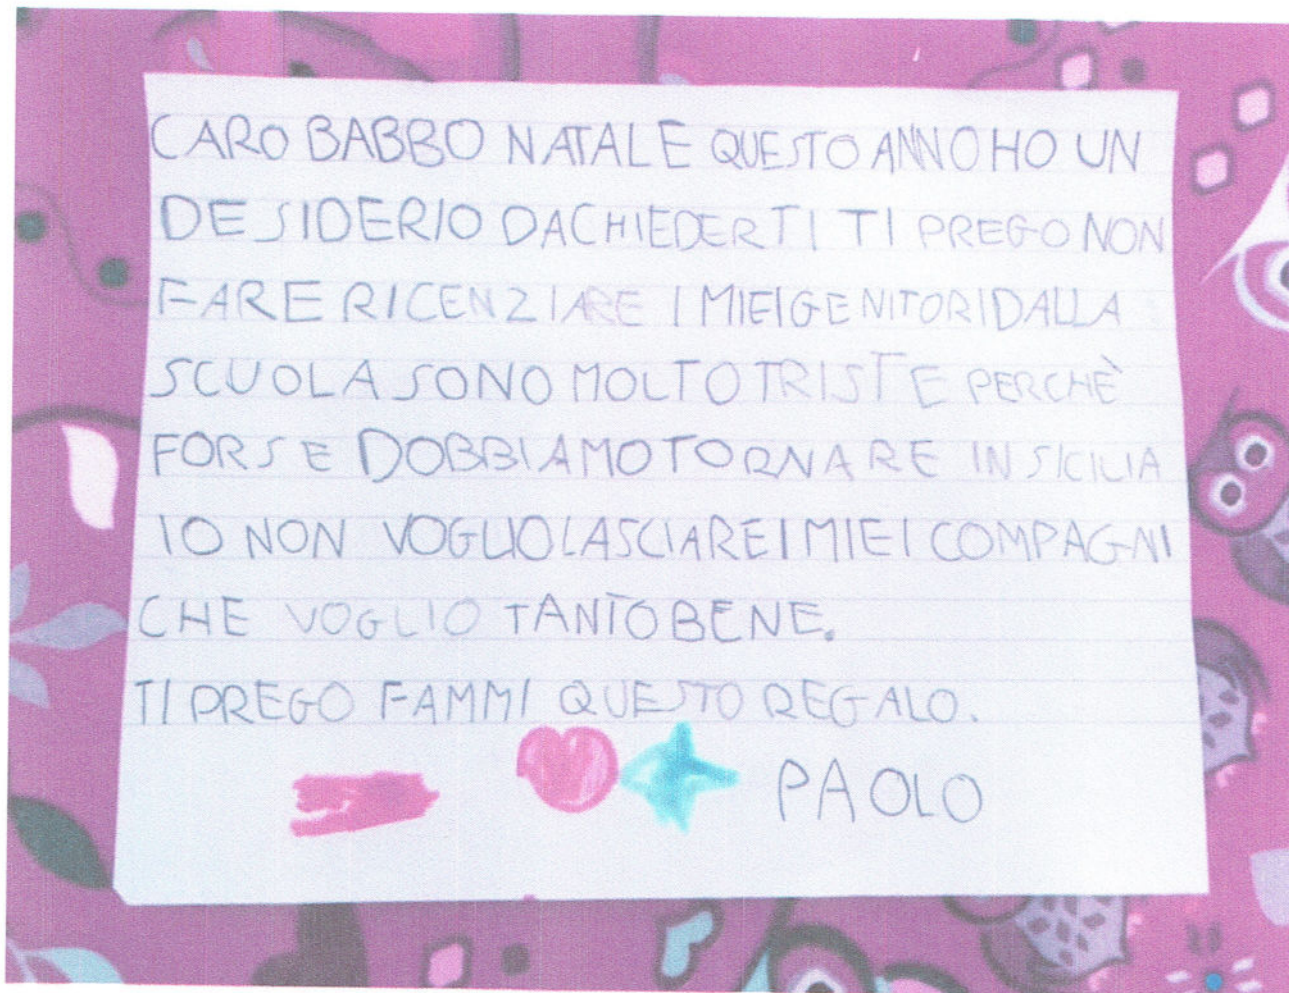 CARO BABBO NATALE QUESTO ANNO HO UN
DESIDERIO DA CHIEDERTI TI PREGO NON
FARE RICENZIARE I MIEI GENITORI DALLA
SCUOLA SONO MOLTO TRISTE PERCHÈ
FORSE DOBBIAMO TORNARE IN SICILIA
IO NON VOGLIO LASCIARE I MIEI COMPAGNI
CHE VOGLIO TANTO BENE.
TI PREGO FAMMI QUESTO REGALO.
PAOLO